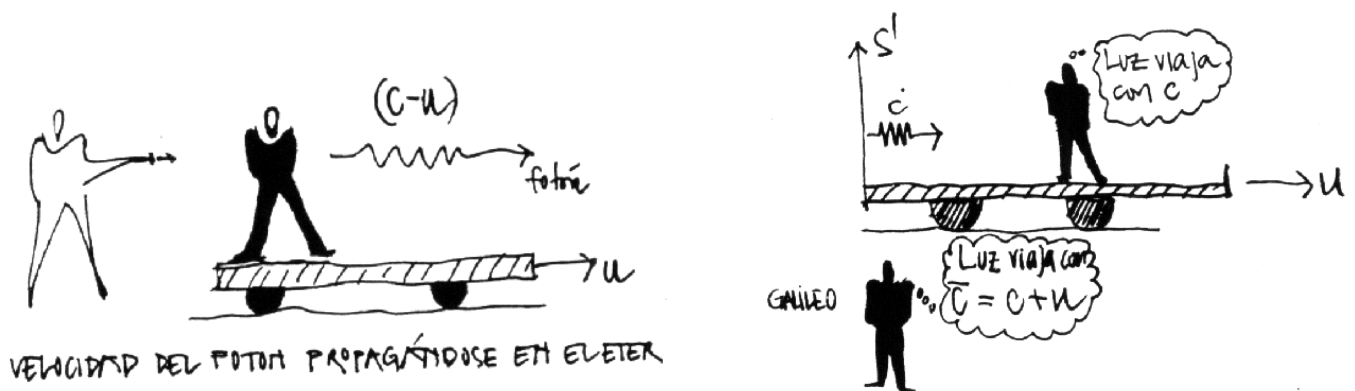 (C-U)
fotón
U
VELOCIDAD DEL FOTON PROPAGÁNDOSE EN EL ETER
S'
Luz viaja
con c
c
U
GALILEO
Luz viaja con
C̅ = C+U